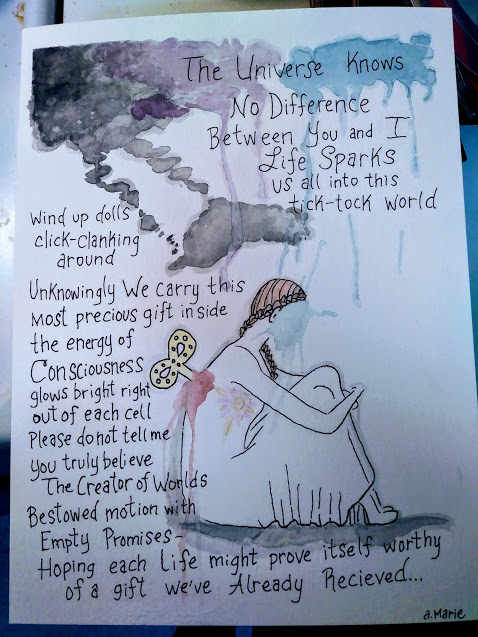 The Universe Knows
No Difference
Between You and I
Life Sparks
us all into this
tick-tock world
wind up dolls
click-clanking
around
Unknowingly We Carry this
most precious gift inside
the energy of
Consciousness
glows bright right
out of each cell
Please do not tell me
you truly believe
The Creator of Worlds
Bestowed motion with
Empty Promises-
Hoping each Life might prove itself worthy
of a gift we've Already Recieved...
a.Marie